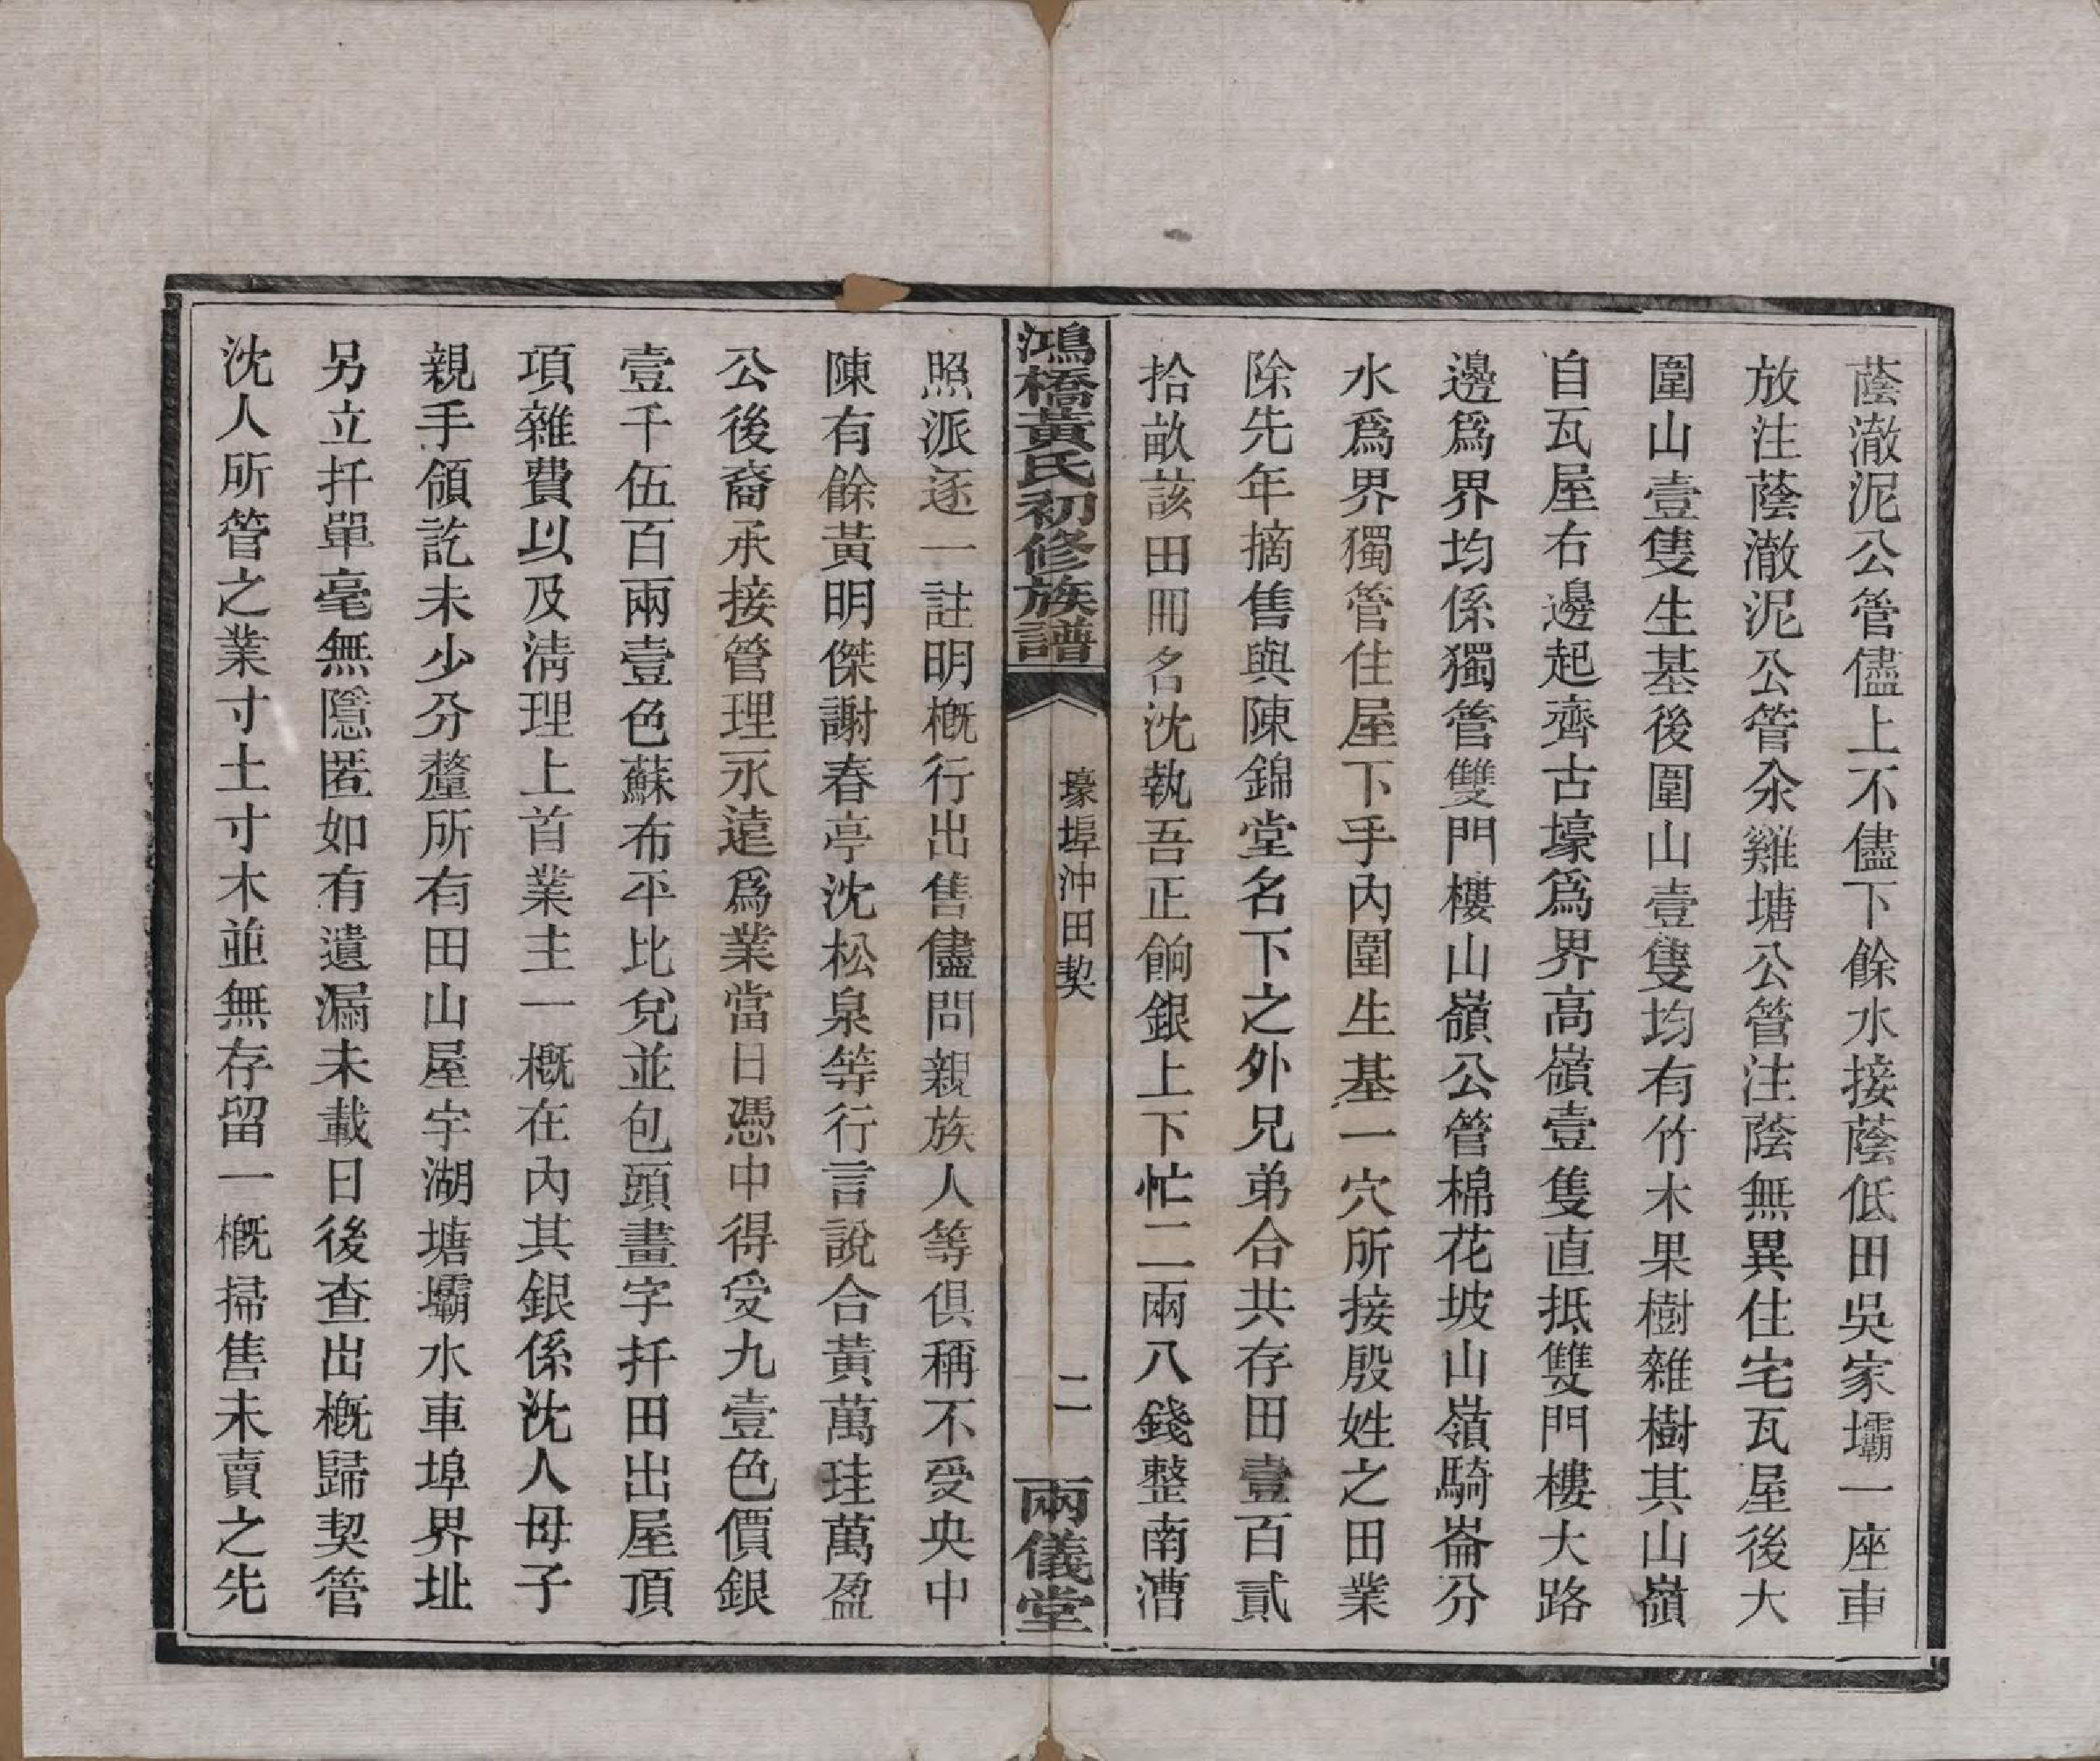 蔭澈泥公管儘上不儘下餘水接蔭低田吳家壩一座車
放注蔭澈泥公管汆雞塘公管注蔭無異住宅瓦屋後大
圍山壹隻生基後圍山壹隻均有竹木果樹雜樹其山嶺
自瓦屋右邊起齊古壕爲界高嶺壹隻直抵雙門樓大路
邊爲界均係獨管雙門樓山嶺公管棉花坡山嶺騎崙分
水爲界獨管住屋下手內圍生基一穴所接殷姓之田業
除先年摘售與陳錦堂名下之外兄弟合共存田壹百貳
拾畝該田冊名沈執吾正餉銀上下忙二兩八錢整南漕
鴻橋黃氏初修族譜
壕埠沖田契
二
兩儀堂
照派逐一註明概行出售儘問親族人等俱稱不受央中
陳有餘黃明傑謝春亭沈松泉等行言說合黃萬珪萬盈
公後裔承接管理永遠爲業當日憑中得受九壹色價銀
壹千伍百兩壹色蘇布平比兌並包頭畫字扦田出屋頂
項雜費以及清理上首業主一概在內其銀係沈人母子
親手領訖未少分釐所有田山屋宇湖塘壩水車埠界址
另立扦單毫無隱匿如有遺漏未載日後查出概歸契管
沈人所管之業寸土寸木並無存留一概掃售未賣之先